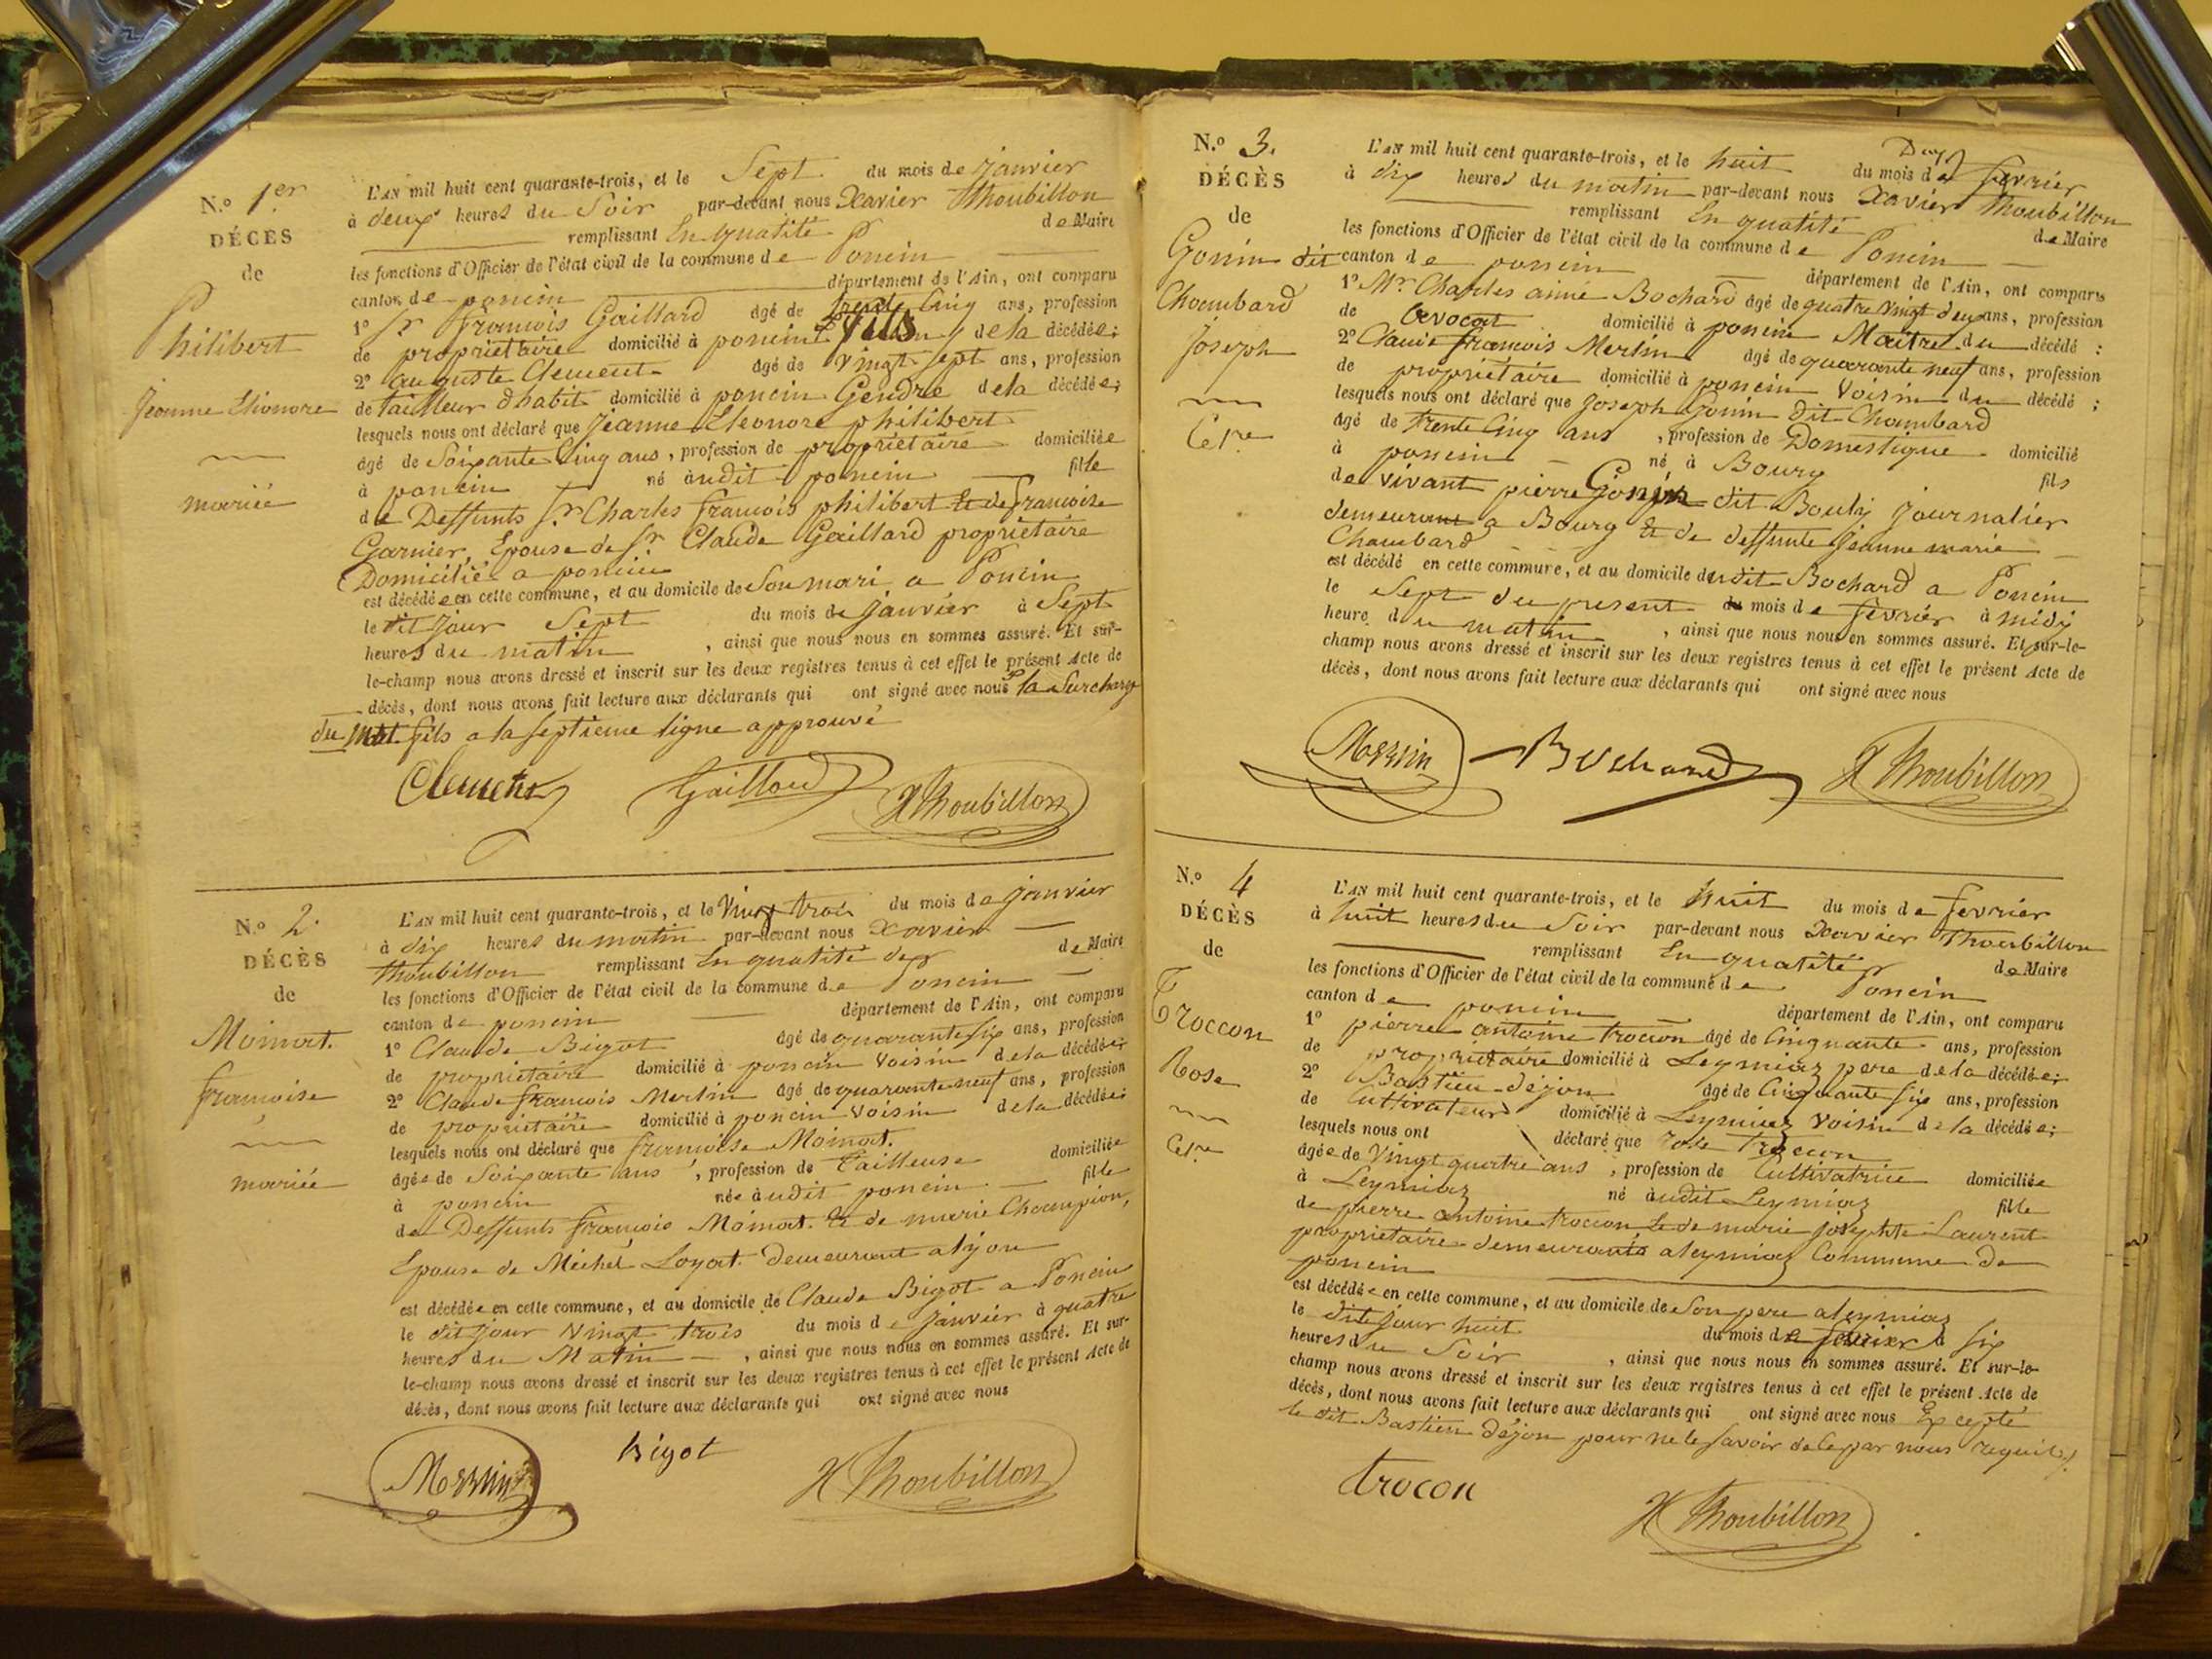 N.o 1er
DÉCÈS
de
Philibert
Jeanne Elionore
mariée
L'AN mil huit cent quarante-trois, et le Sept du mois de janvier
à deux heures du Soir par-devant nous Xavier Thoubillon
remplissant En qualité de Maire
les fonctions d'Officier de l'état civil de la commune de Poncin
canton de poncin département de l'Ain, ont comparu
1o Sr. francois Gaillard âgé de trente Cinq ans, profession
de propriétaire domicilié à poncin fils de la décédée;
2o auguste Clement âgé de vingt sept ans, profession
de tailleur d'habit domicilié à poncin Gendre de la décédée;
lesquels nous ont déclaré que jeanne Eleonore philibert
âgé de Soixante Cinq ans, profession de propriétaire domiciliée
à poncin né audit poncin fille
de Deffunts Sr. Charles francois philibert Et de francoise
Garnier, Epouse de Sr Claude Gaillard propriétaire
Domicilié a poncin
est décédée en cette commune, et au domicile de Son mari a Poncin
le dit jour Sept du mois de janvier à Sept
heures du matin, ainsi que nous nous en sommes assuré. Et sur-
le-champ nous avons dressé et inscrit sur les deux registres tenus à cet effet le présent Acte de
décès, dont nous avons fait lecture aux déclarants qui ont signé avec nous la Surcharge
du mot fils a la septieme ligne approuvé
Clement Gaillard X Thoubillon
N.o 2.
DÉCÈS
de
Moimat.
francoise
mariée
L'AN mil huit cent quarante-trois, et le Vingt trois du mois de janvier
à dix heures du matin par-devant nous Xavier
Thoubillon remplissant En qualité de Maire
les fonctions d'Officier de l'état civil de la commune de Poncin
canton de poncin département de l'Ain, ont comparu
1o Claude Bigot âgé de quarante six ans, profession
de propriétaire domicilié à poncin voisin de la décédée;
2o Claude francois Merlin âgé de quarante neuf ans, profession
de propriétaire domicilié à poncin voisin de la décédée;
lesquels nous ont déclaré que francoise Moimat.
âgée de Soixante ans, profession de Tailleuse domiciliée
à poncin née audit poncin fille
de Deffunts francois Moimat. Et de marie Champion,
Epouse de Michel Loyat. demeurant a lyon
est décédée en cette commune, et au domicile de Claude Bigot a Poncin
le dit jour Vingt trois du mois de janvier à quatre
heures du Matin, ainsi que nous nous en sommes assuré. Et sur-
le-champ nous avons dressé et inscrit sur les deux registres tenus à cet effet le présent Acte de
décès, dont nous avons fait lecture aux déclarants qui ont signé avec nous
Merlin Bigot X Thoubillon
N.o 3.
DÉCÈS
de
Gonin dit
Chambard
Joseph
Cere
L'AN mil huit cent quarante-trois, et le huit du mois de fevrier
à dix heures du matin par-devant nous Xavier Thoubillon
remplissant En qualité de Maire
les fonctions d'Officier de l'état civil de la commune de Poncin
canton de poncin département de l'Ain, ont comparu
1o Mr. Charles aimé Bochard âgé de quatre vingt deux ans, profession
de avocat domicilié à poncin Maitre du décédé:
2o Claude francois Merlin âgé de quarante neuf ans, profession
de propriétaire domicilié à poncin Voisin du décédé;
lesquels nous ont déclaré que joseph Gonin dit Chambard
âgé de trente Cinq ans, profession de Domestique domicilié
à poncin né à Bourg fils
de vivant pierre Gonin dit Bouly journalier
demeurant a Bourg Et de deffunte jeanne marie
Chambard
est décédé en cette commune, et au domicile dudit Bochard a Poncin
le Sept du present du mois de fevrier à midi
heure du matin, ainsi que nous nous en sommes assuré. Et sur-le-
champ nous avons dressé et inscrit sur les deux registres tenus à cet effet le présent Acte de
décès, dont nous avons fait lecture aux déclarants qui ont signé avec nous
Merlin Bochard X Thoubillon
N.o 4
DÉCÈS
de
Troccon
Rose
Cere
L'AN mil huit cent quarante-trois, et le huit du mois de fevrier
à huit heures du Soir par-devant nous Xavier Thoubillon
remplissant En qualité de Maire
les fonctions d'Officier de l'état civil de la commune de Poncin
canton de poncin département de l'Ain, ont comparu
1o pierre antoine trocon âgé de Cinquante ans, profession
de propriétaire domicilié à Leymiaz pere de la décédée;
2o Bastien dejon âgé de Cinquante six ans, profession
de Cultivateur domicilié à Leymiaz Voisin de la décédée;
lesquels nous ont déclaré que rose trocon
âgée de Vingt quatre ans, profession de Cultivatrice domiciliée
à Leymiaz né audit Leymiaz fille
de pierre antoine trocon Et de marie josephte Laurent
propriétaire demeurants a leymiaz Commune de
poncin
est décédée en cette commune, et au domicile de Son pere a leymiaz
le dit jour huit du mois de fevrier à six
heures du Soir, ainsi que nous nous en sommes assuré. Et sur-le-
champ nous avons dressé et inscrit sur les deux registres tenus à cet effet le présent Acte de
décès, dont nous avons fait lecture aux déclarants qui ont signé avec nous Excepté
le dit Bastien dejon pour ne le savoir de ce par nous requis
trocon X Thoubillon